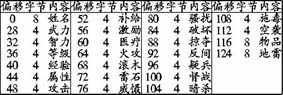 偏移字节内容 偏移字节内容 偏移字节内容 偏移字节内容
0 8 姓名 52 4 补给 80 4 骚扰 108 4 施毒
28 4 武力 56 4 激励 84 4 破坏 112 4 空数
32 4 智力 60 4 医疗 88 4 掠夺 116 8 物品
36 4 等级 64 4 火攻 92 4 反间 124 8 地雷
40 4 经验 68 4 滚木 96 4 疑兵
44 4 属性 72 4 雷石 100 4 督战
48 4 攻击 76 4 威慑 104 4 暗杀